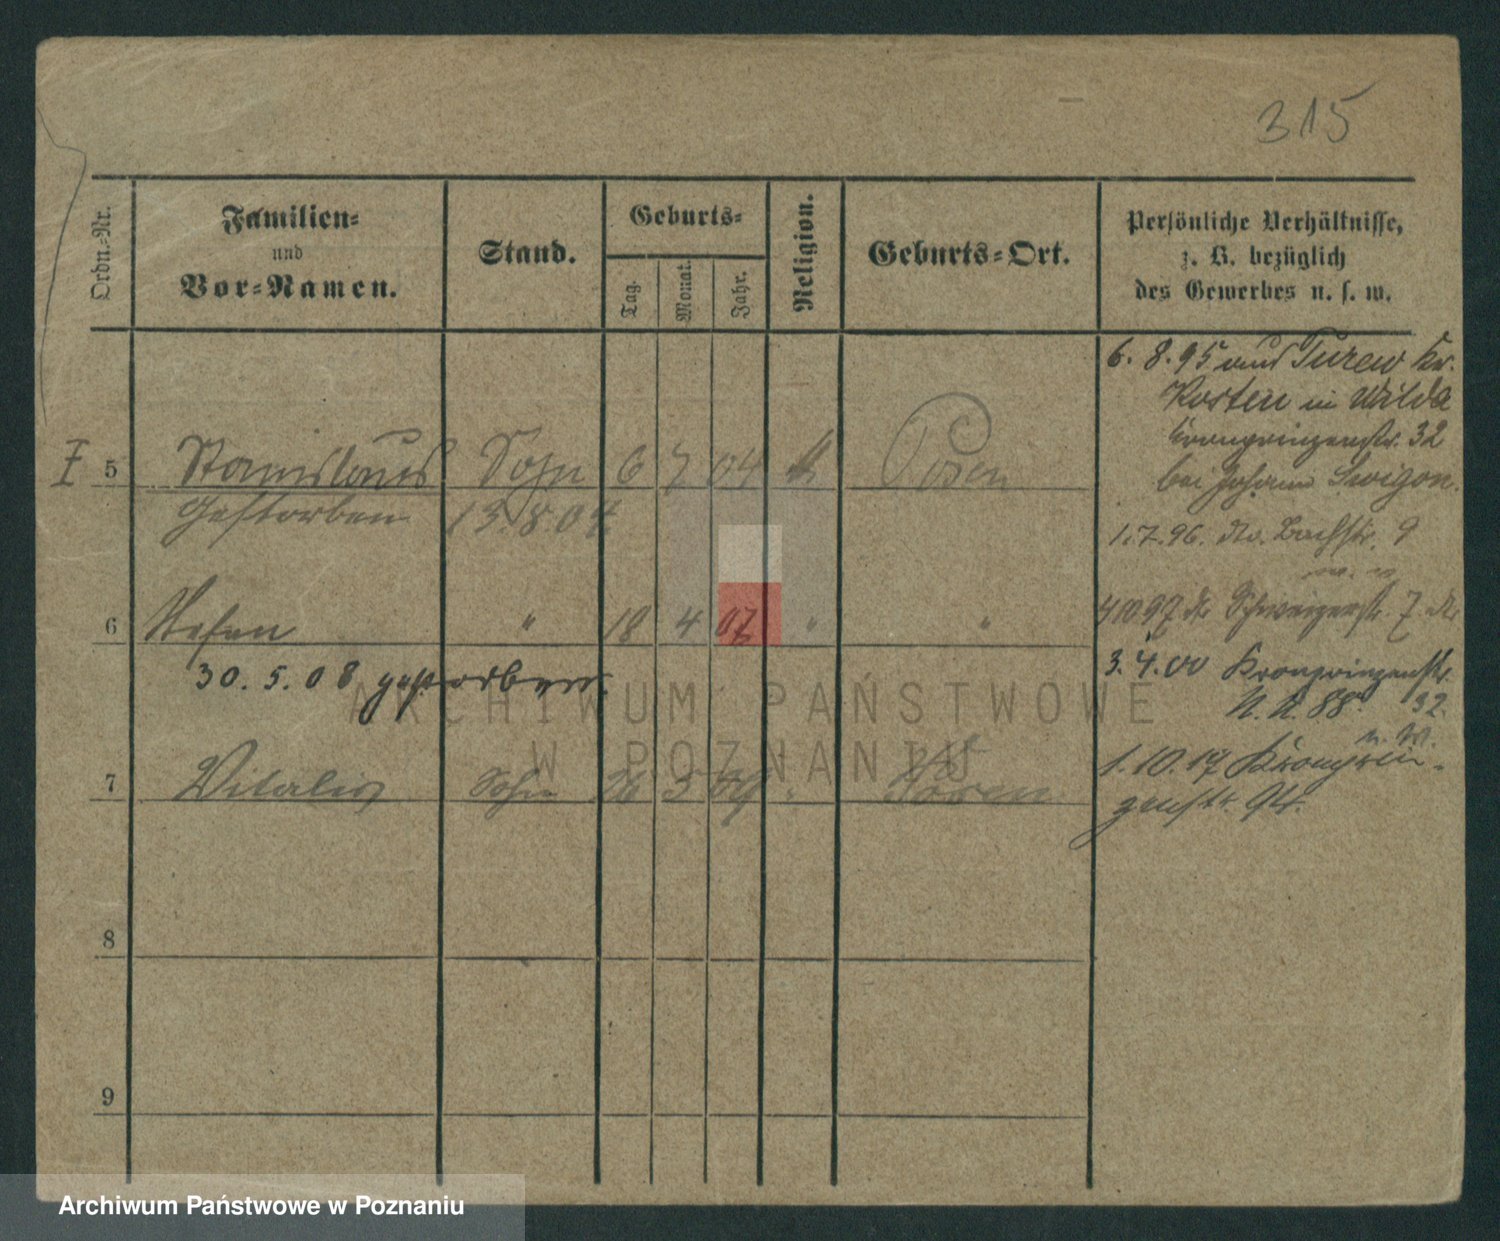 315
Ordn.-Nr.
Familien-
und
Vor-Namen.
Stand.
Geburts-
Tag.
Monat.
Jahr.
Religion.
Geburts-Ort.
Persönliche Verhältnisse,
z. B. bezüglich
des Gewerbes u. s. w.
6. 8. 95 aus Turew Kr.
Kosten in Wilda
Kronprinzenstr. 32
bei Johann
5 Stanislaus Sohn 6 7 04 " Posen
Gestorben 13.8.04
1.7.96. Bachstr. 9
6 Stefan " 18 4 07 " "
4 10 97 Schweizerstr. 7
30. 5. 08 gestorben.
3. 4. 00 Kronprinzenstr.
88 32
7 Vitalis Sohn 3 09 " Posen
1. 10. 17 Kronprin-
zenstr. 94.
8
9
ARCHIWUM PAŃSTWOWE
W POZNANIU
Archiwum Państwowe w Poznaniu